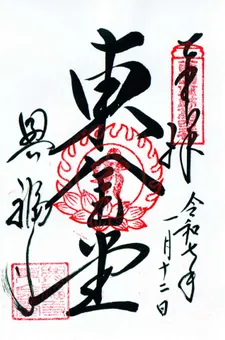 奉拝
令和七年
一月十二日
東金堂
興福寺